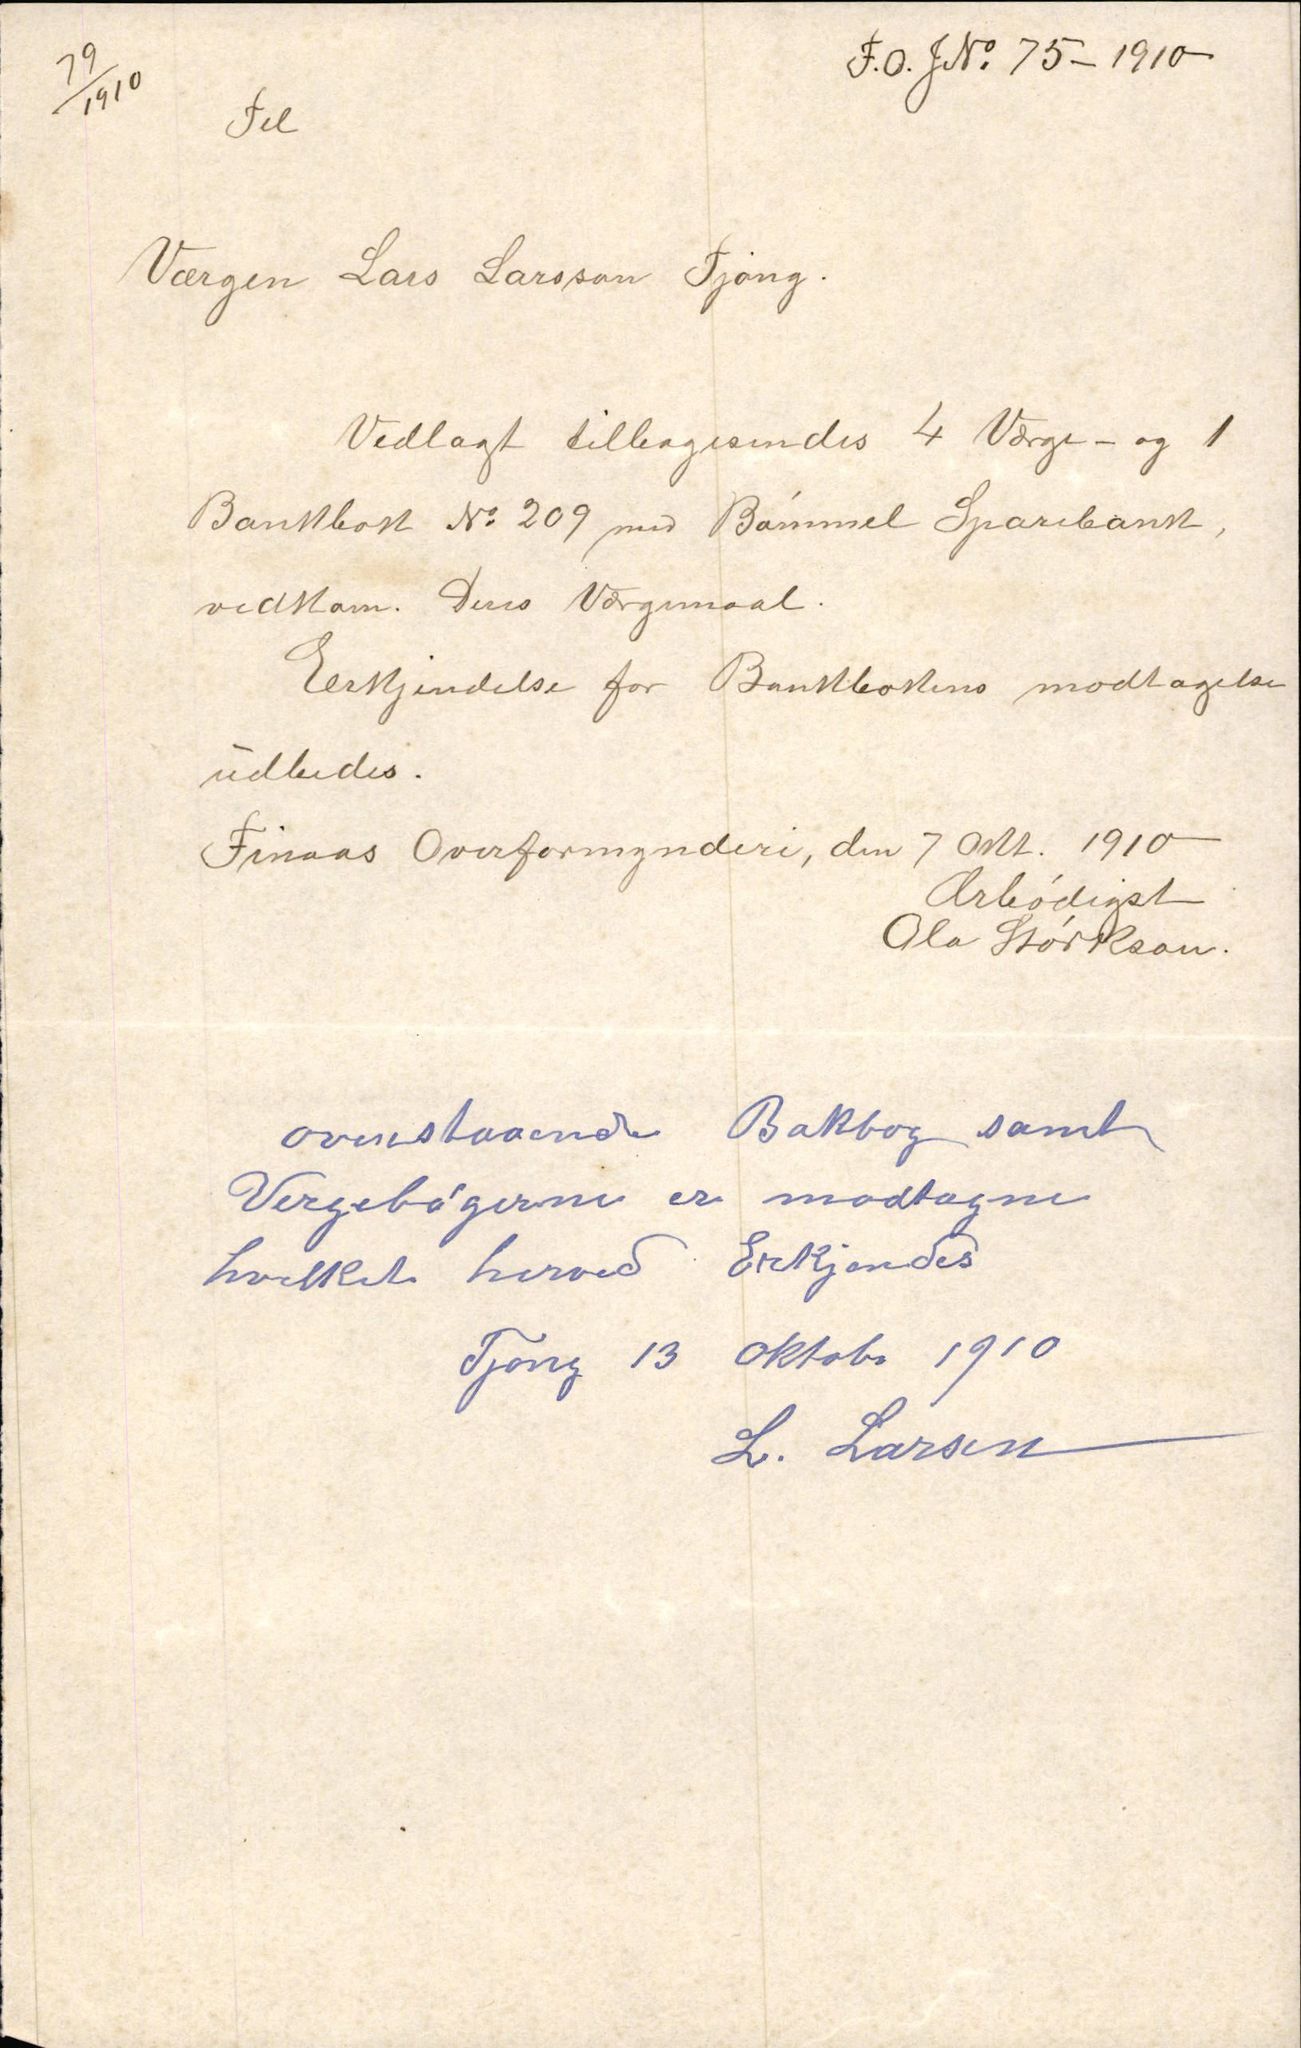 79/1910
F.O. J№. 75 - 1910
Til
Værgen Lars Larsson Tjong.
Vedlagt tilbagesendes 4 Værge- og 1
Bankbok №. 209 med Bómmel Sparebank,
vedkom. Deres Værgemaal.
Eerkjendelse for Bankbokens modtagelse
udbedes.
Finaas Overformynderi, den 7 Okt. 1910
Ærbódigst
Ola Störkson.
ovenstaaende Bakbog samt
Vergebógerne er modtagne
hvilket herved Erkjendes
Tjong 13 Oktobr 1910
L. Larsen